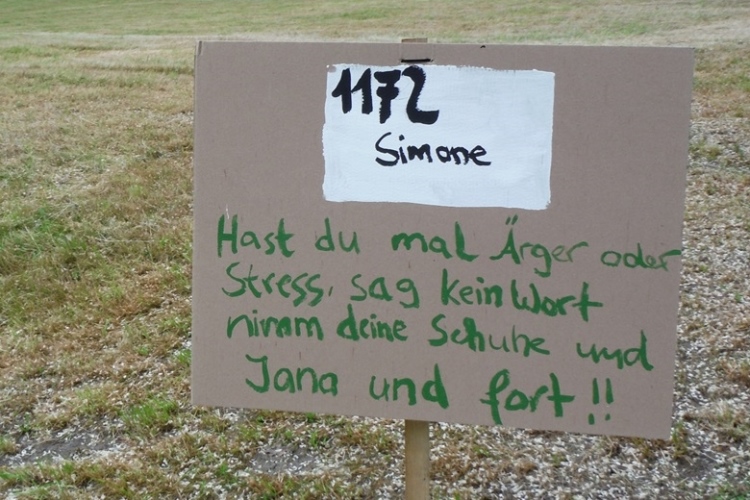 1172
Simone
Hast du mal Ärger oder
Stress, sag kein Wort
nimm deine Schuhe und
Jana und fort!!